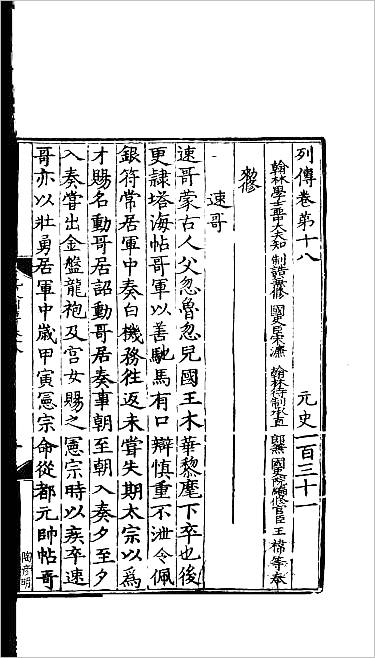 列傳卷第十八 元史一百三十一
翰林學士亞中大夫知 制誥兼修 國史臣宋濂 翰林待制承直郎兼 國史院編修官臣王禕等奉
敕修
速哥
速哥蒙古人父忽魯忽兒國王木華黎麾下卒也後
更隷塔海帖哥軍以善馳馬有口辯慎重不泄令佩
銀符常居軍中奏白機務往返未嘗失期太宗以爲
才賜名動哥居詔動哥居奏事朝至朝入奏夕至夕
入奏嘗出金盤龍袍及宫女賜之憲宗時以疾卒速
哥亦以壯勇居軍中歲甲寅憲宗命從都元帥帖哥